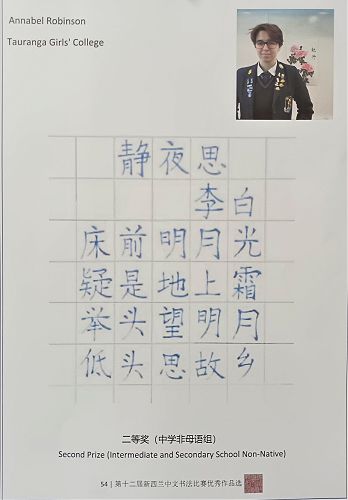 Annabel Robinson
Tauranga Girls' College
静夜思
李白
床前明月光
疑是地上霜
举头望明月
低头思故乡
二等奖（中学非母语组）
Second Prize (Intermediate and Secondary School Non-Native)
54 | 第十二届新西兰中文书法比赛优秀作品选